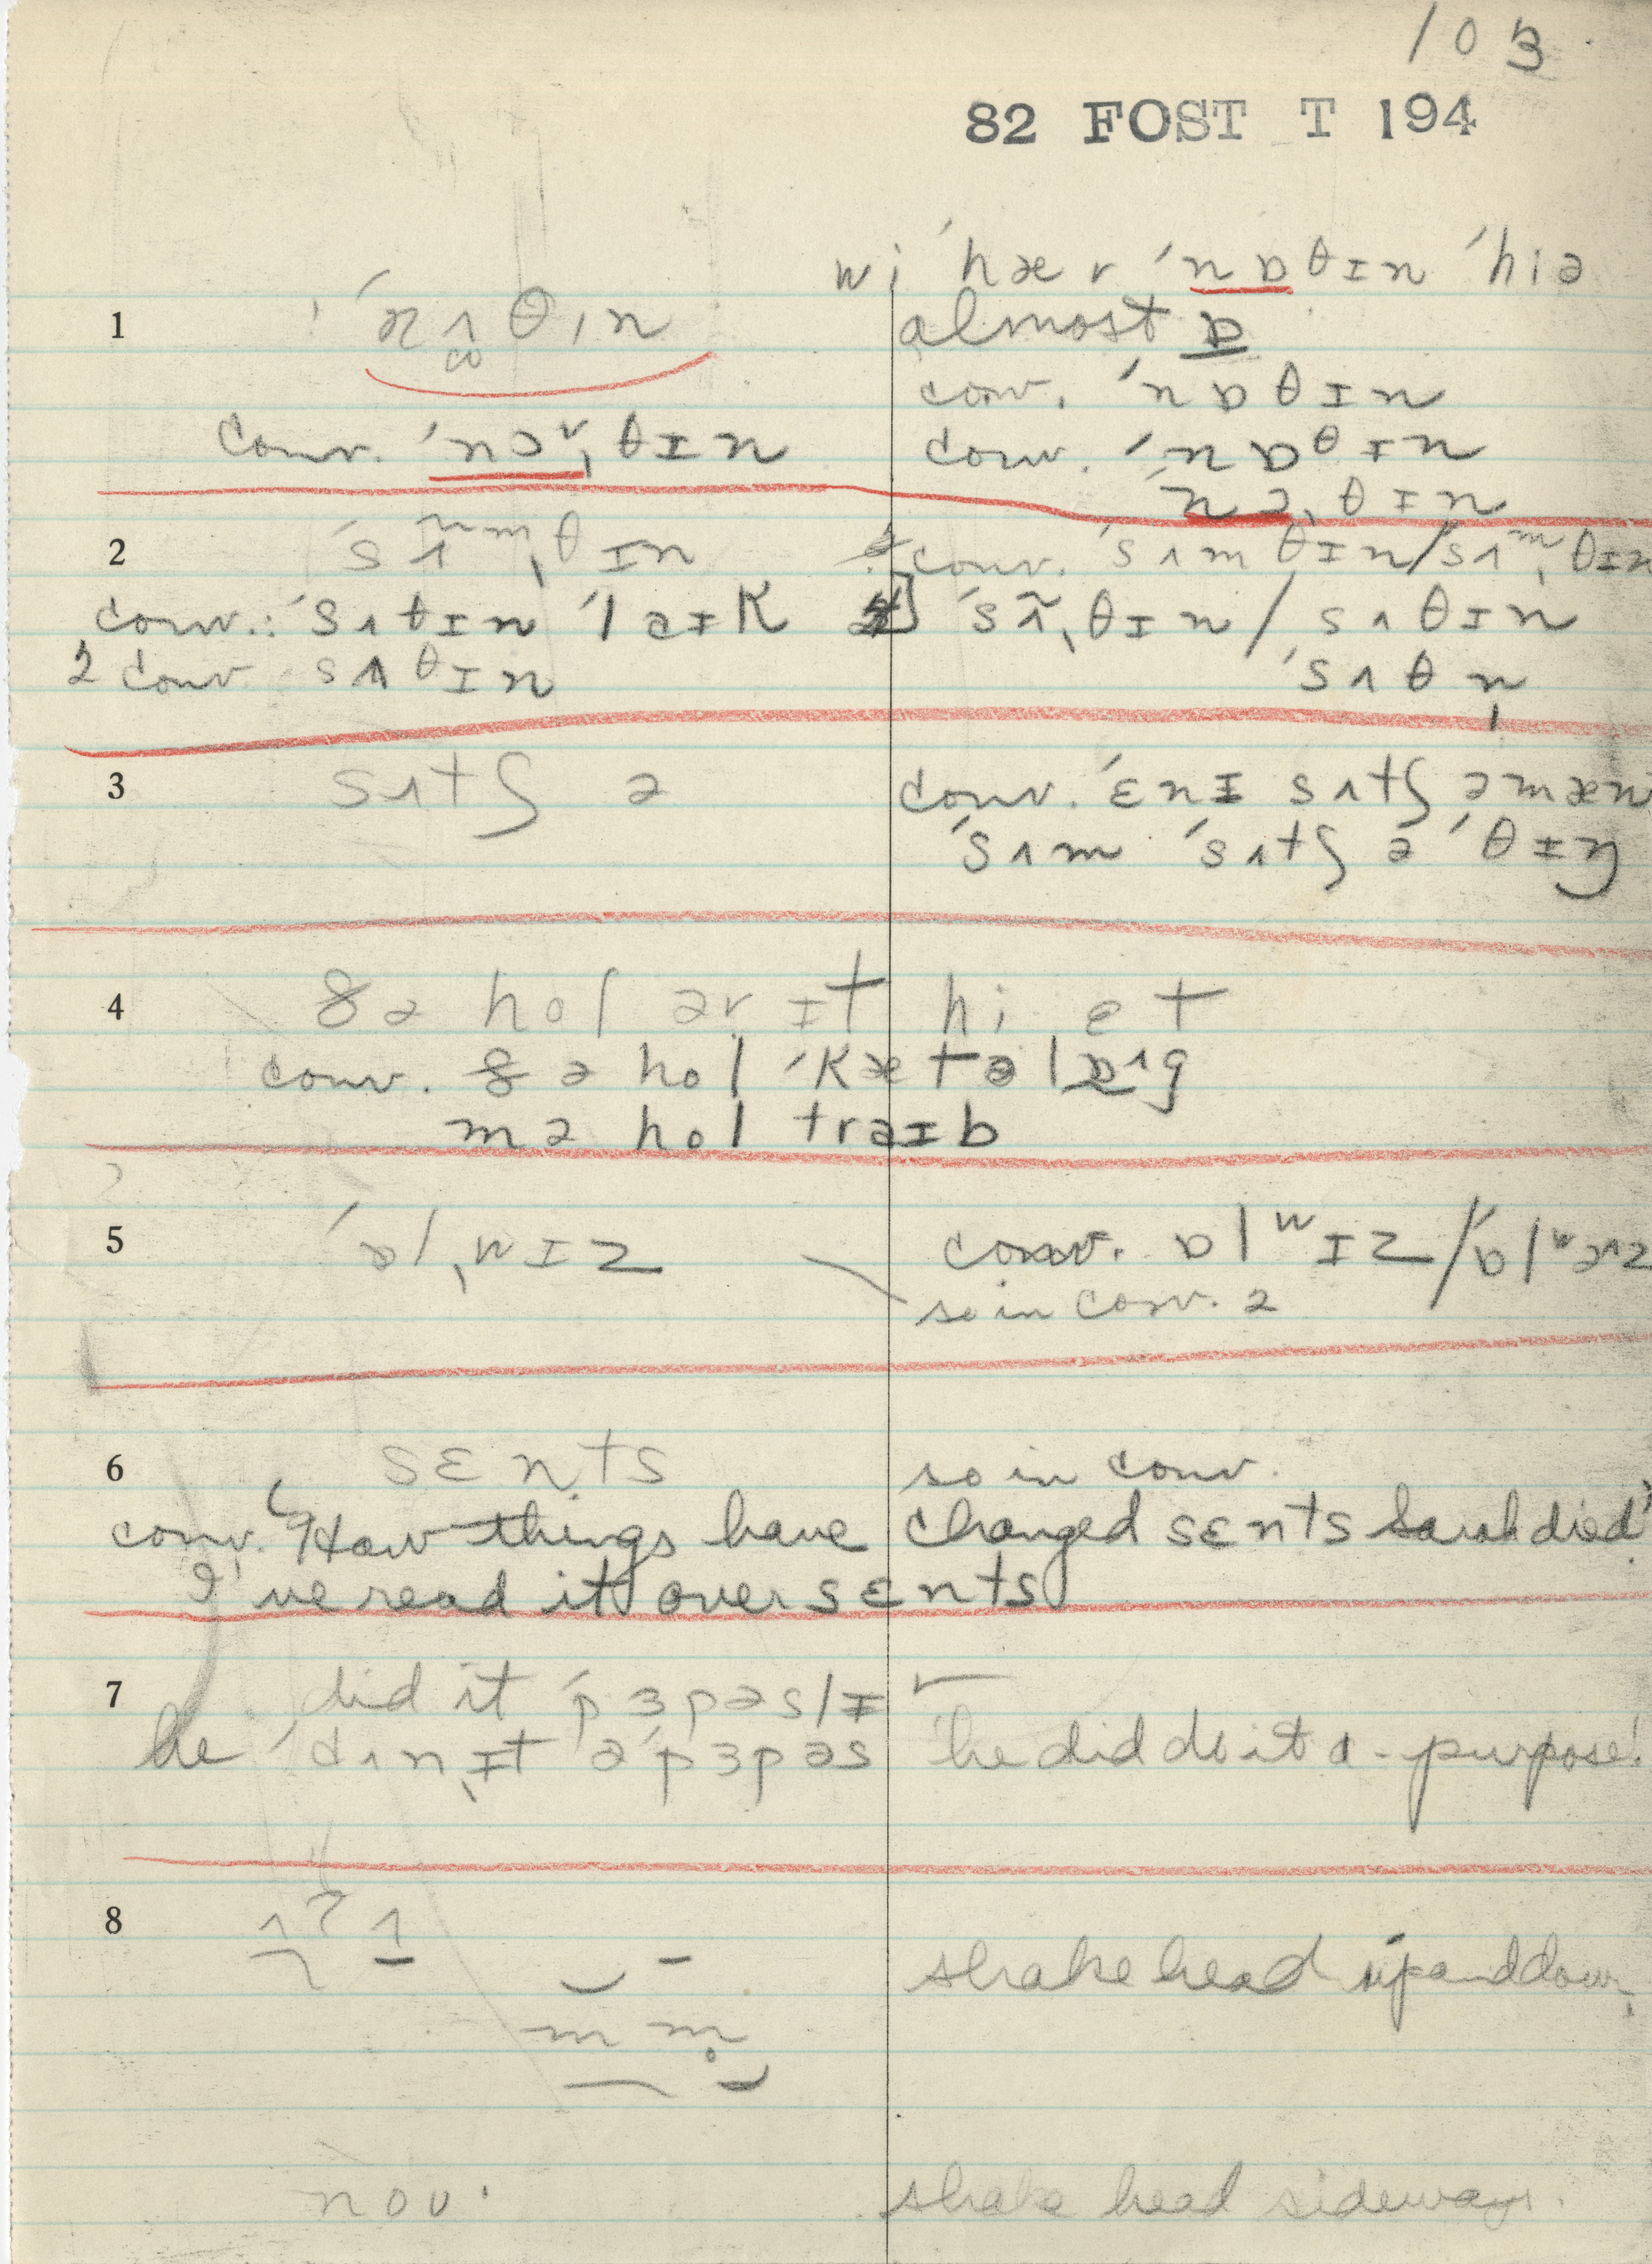 103
82 FOST T 194
wi ˈhær ˈnɒθɪn ˈhiə
1 ˈnʌθɪn almost ɒ
conv. ˈnɒθɪn
conv. ˈnɔ˅ˌθɪn conv. ˈnɒθɪn
ˈnəˌθɪn
2 ˈsʌmˌθɪn conv. ˈsʌmθɪn/sʌᵐˌθɪn
conv.: ˈsʌtɪn ˈlaɪk ˈsʌ̃ˌθɪn/sʌθɪn
2 conv sʌθɪn ˈsʌθn̩
3 sʌtʃ ə conv. ˈɛnɪ sʌtʃ əmæn
ˈsʌm ˈsʌtʃ ə ˈθɪŋ
4 ðə hol ərɪt hi et
conv. ðə hol ˈkætəlɒ^g
mə hol traɪb
5 ˈɒlˌwɪz conv. ɒlʷɪz/ˈɒlʷəz
so in conv. 2
6 sɛnts so in conv.
conv. "How things have changed sɛnts Sarah died"
I've read it over sɛnts
7 did it ˈpɜpəslɪ ✓
he ˈdʌnˌɪt əˈpɜpəs he did do it a-purpose!
8 ʌʔʌ
shake head up and down
m m̥
nou· shake head sideways.